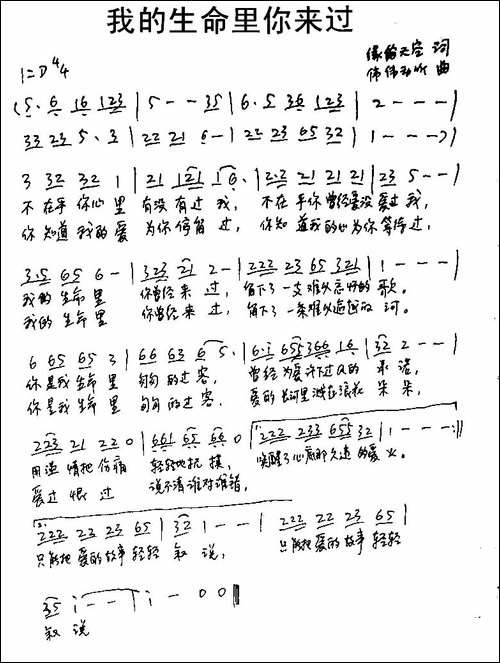 我的生命里你来过
1=D 4/4
缘的天空 词
伟伟动听 曲
(5· 6 16 123 | 5 - - 35 | 6· 5 36 123 | 2 - - - |
33 23 5· 3 | 22 21 6 - | 22 23 65 32 | 1 - - -) |
3 32 32 1 | 21 121 16· | 2·2 21 21 21 | 23 5 - - |
不在乎你心里 有没有过我, 不在乎你曾经爱没爱过我,
你知道我的爱 为你停留过, 你知道我的心为你等待过,
3·5 65 6 - | 323 21 2 - | 222 23 65 321 | 1 - - - |
我的生命里 你曾经来过, 留下了一支难以忘怀的歌。
我的生命里 你曾经来过, 留下了一条难以逾越的河。
6 65 65 3 | 66 63 6 5· | 6·i 655 366 16 | 32 2 - - |
你是我生命里 匆匆的过客, 曾经为爱许下过的承诺,
你是我生命里 匆匆的过客, 爱的长河里溅在浪花朵朵,
223 21 22 0 | 661 65 66 0 | 222 233 655 32 | 1 - - - :||
用温情把伤痛 轻轻地抚摸, 唤醒了心底那久违的爱火。
爱过恨过 说不清谁对谁错,
2.
222 22 23 65 | 32 1 - - | 222 22 23 65 |
只能把爱的故事轻轻叙说, 只能把爱的故事轻轻
35 i - - | i - 0 0 ||
叙说